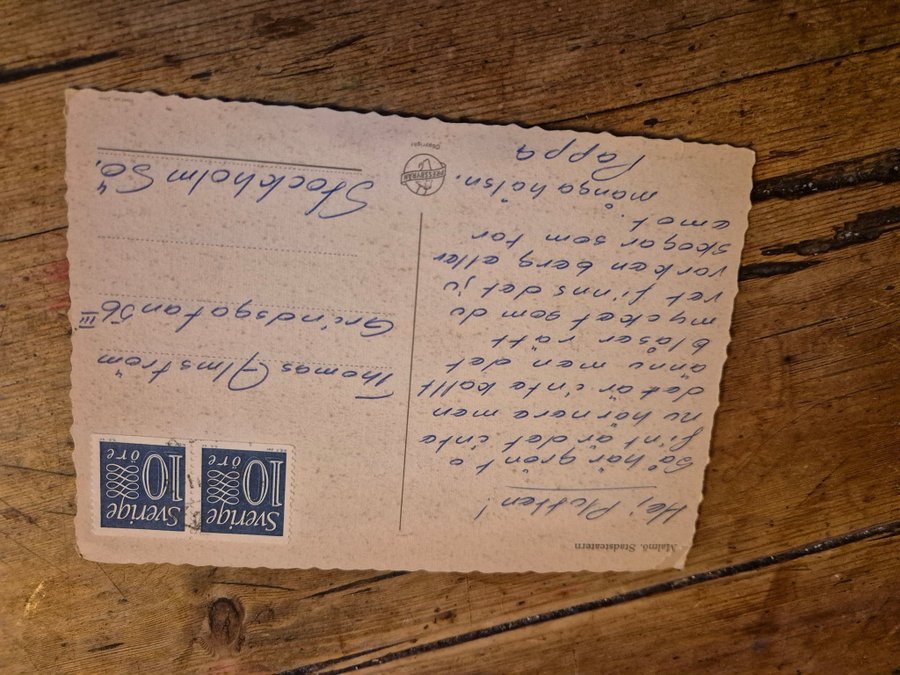 Malmö. Stadsteatern
Hej Plutten!
Så här grönt o
fint är det inte
nu här nere men
det är inte kallt
ännu men det
blåser rätt
mycket som du
vet finns det ju
varken berg eller
skogar som tar
emot.
många hälsn.
Pappa
Copyright
PRESSBYRÅN
Sverige
10
öre
Sverige
10
öre
Thomas Almström
Grindsgatan 36 III
Stockholm Sö,